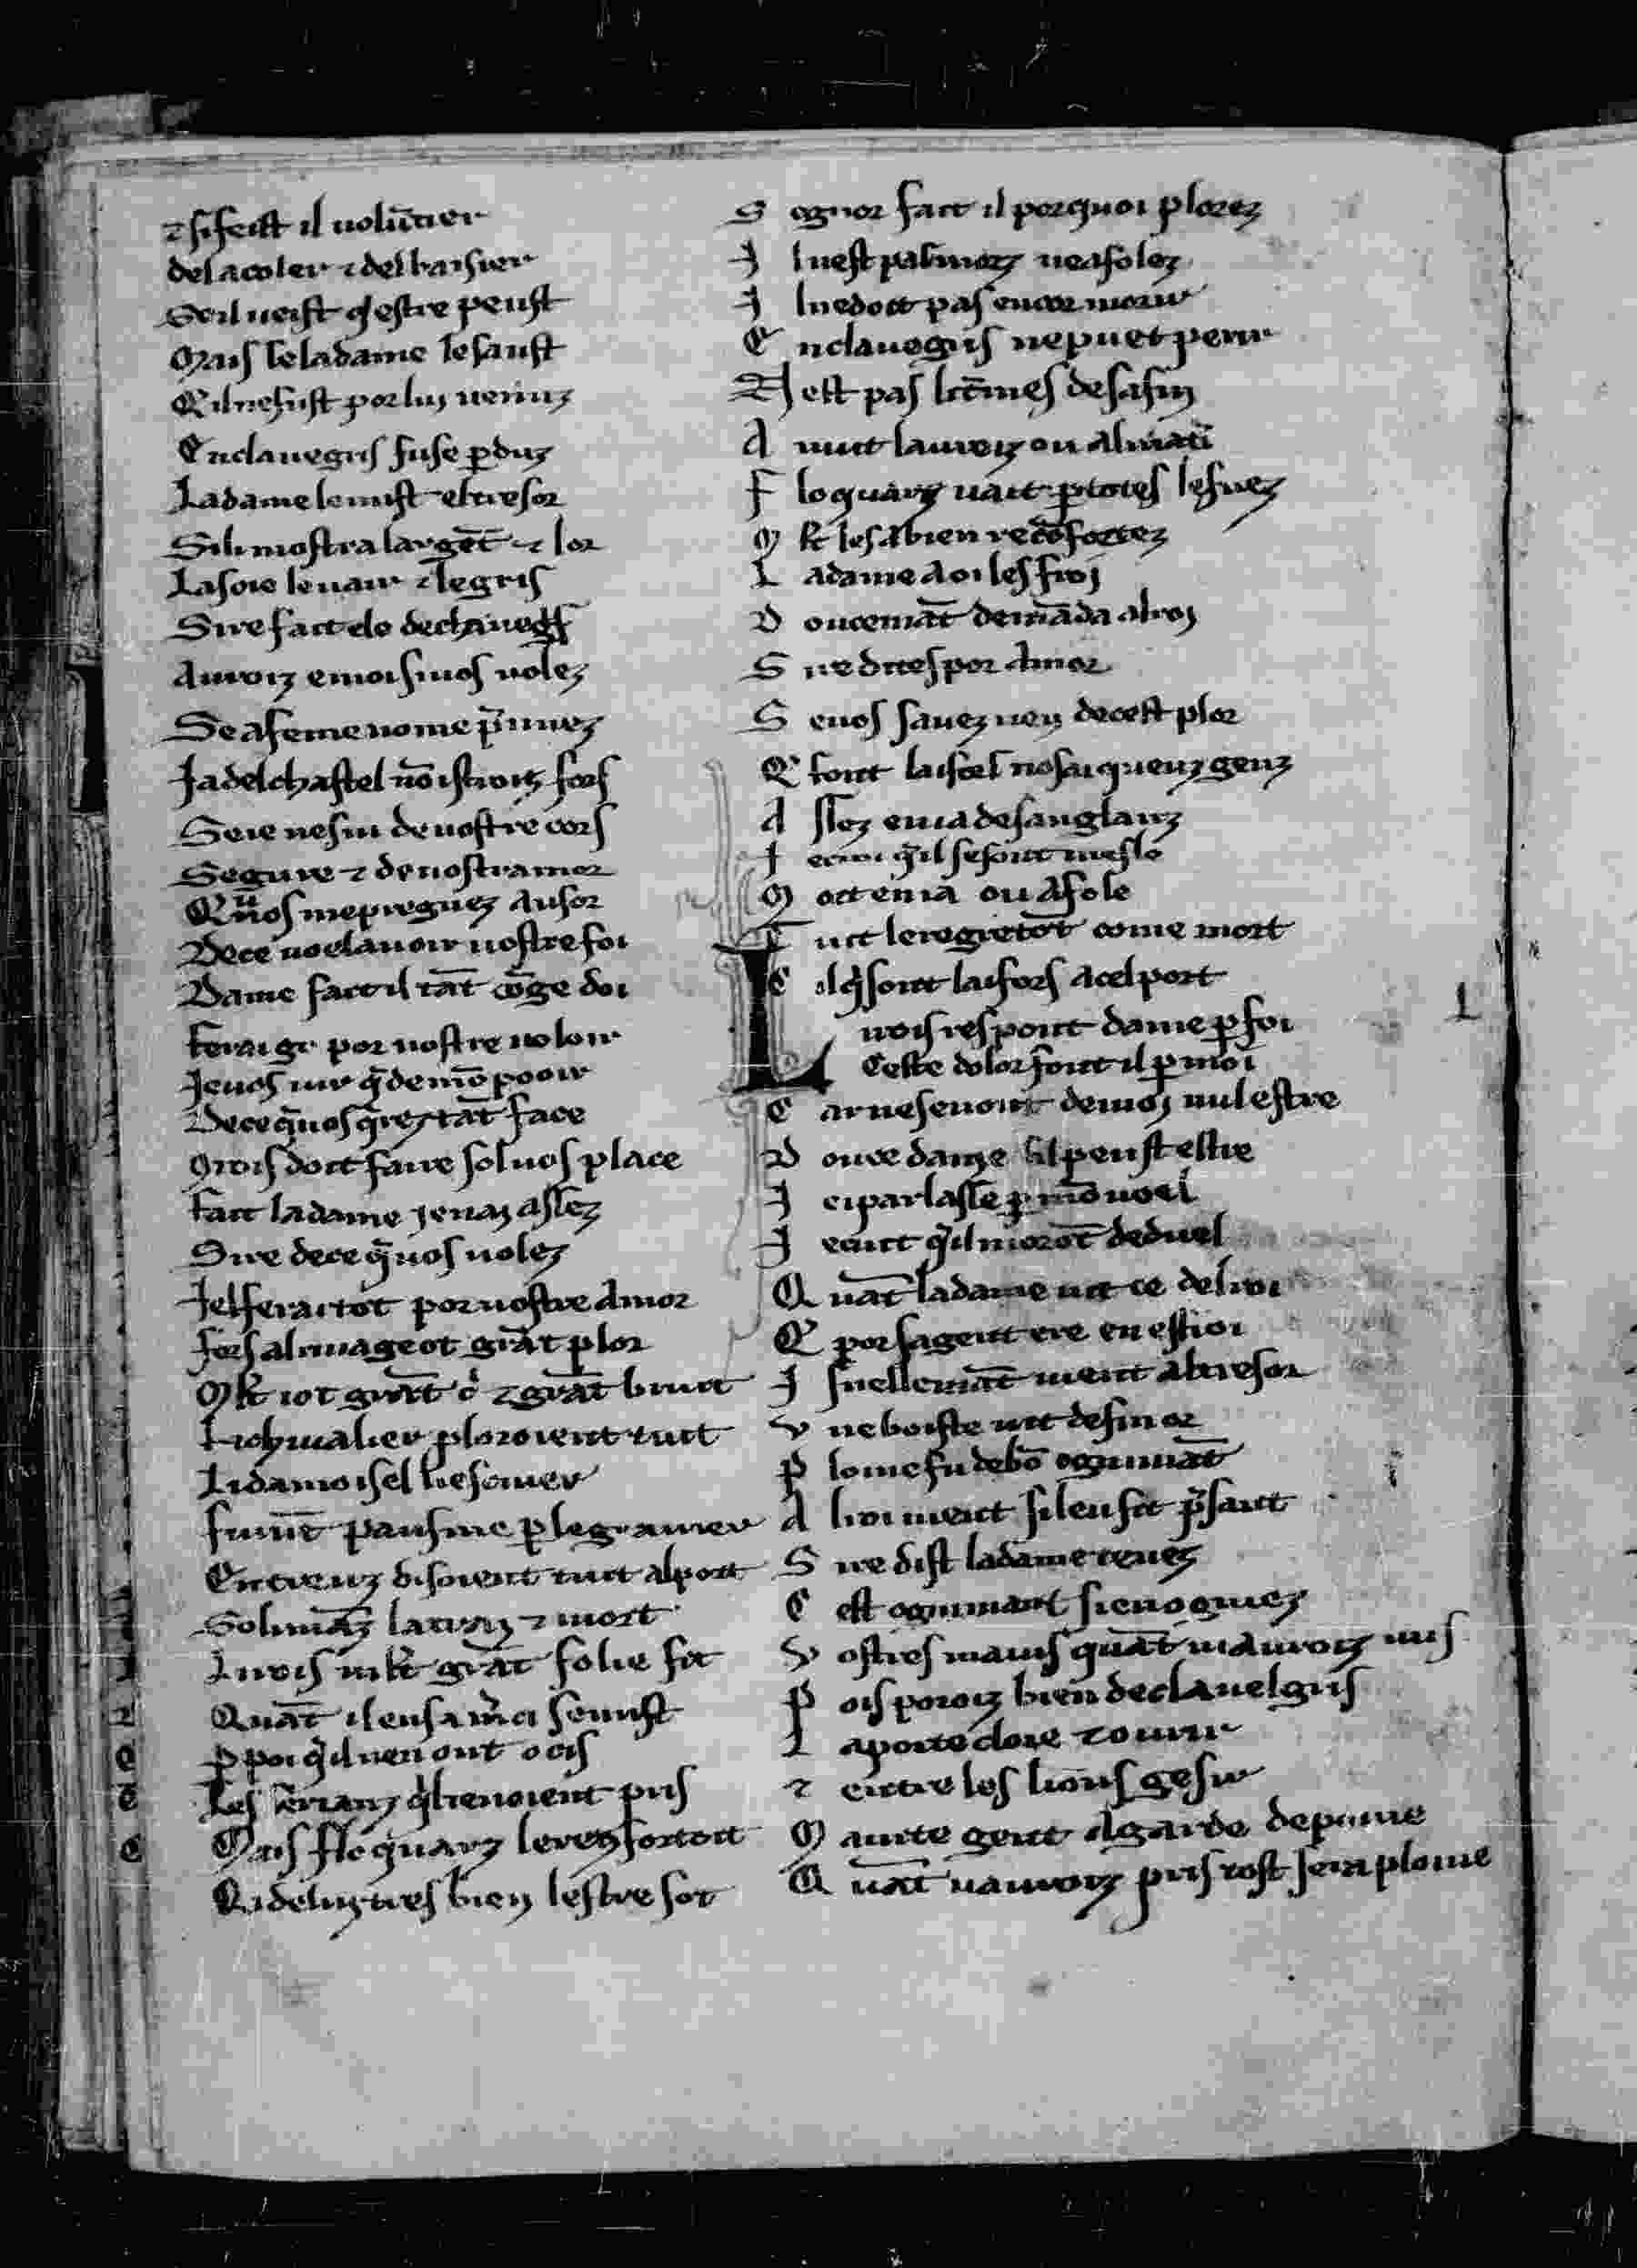 ⁊ si feist il volūtier
del acoler ⁊ del baisier
Se il veist q̄ estre peust
Mais se la dame le saust
Qil ne fust por luy venuz
En clauegris fuse ꝑduz
La dame le mist el tresor
Si li mostra largēt ⁊ lor
La soie le vair ⁊ le gris
Sire fait ele de clauegris
Auroiz e moi si vos volez
Se a feme vo me p̄nnez
Ja del chastel nō istroiz fors
Seie ne sui de vostre cors
Segure ⁊ de vostramor
Qvos me preguez a usor
De ce voel avoir vostre foi
Dame fait il tāt cōge doi
Ferai ge por vostre voloir
Je vos iur q̄ de mō pooir
De ce q̄ vos q̄rez tāt face
Mois doit faire sol vos place
Fait la dame jen ay assez
Sire de ce q̄ vos volez
Je lferai tot por vostre amor
Fors al riuage ot grāt plor
Mlt̄ i ot grāt c̓ ⁊ grāt bruit
Li chivalier ploroient tuit
Li damoisel li escuier
Funt pausme ꝑ le grauier
Entreuz disoient tuit al port
Solimāz la traiz ⁊ mort
Li rois mlt̄ grāt folie fit
Quāt il en sa m̄ci se mist
P poi q̄il nen ont ocis
Les serianz q̄ li enoient pris
Mais floquarz le renfortoit
Qi de luy tres bien lestre sot
Segnor fait il porquoi plorez
Il nest pas morz ne afolez
Il ne doit pas encor morir
En clauegris ne puet perir
Nest pas li tmes de sa fin
Anuit lauroiz ou al matī
Floquarz vait ꝑ totes les nez
Mlt̄ les a bien recōfortez
La dame a oi les froi
Doucemāt demāda al roy
Sire dites por amor
Se vos savez ren de cest plor
Qi font lai fors no sai quenz genz
Assez en i a de sanglanz
Je croi q̄il se sont meslé
Mort en i a ou afole
Tuit le regretōt come mort
Cil q̄ sont lai fors a cel port
Li rois respont dame ꝑ foi
Ceste dolor font il ꝑ moi
Car ne sevont de moy nul estre
Douce dame sil peust estre
Je i parlasse ꝑ mō voel
Je cuit q̄il morōt de duel
Quāt la dame vit ce del roi
Qi por sa gent ere en esfroi
Isnellemāt vient al tresor
Une boiste vit de fin or
Plome fu de bō oguimāt
Al roi vient si len fit p̄sant
Sire dist la dame tenez
Cest oguimant si en ogniez
Vostres mains quāt mauroiz vis
Pois poroiz bien de clauelgris
La porte clore ⁊ ouvrir
⁊ entre les lions gesir
Mainte gent a garde de pome
Quāt naurois pris tost sera plome